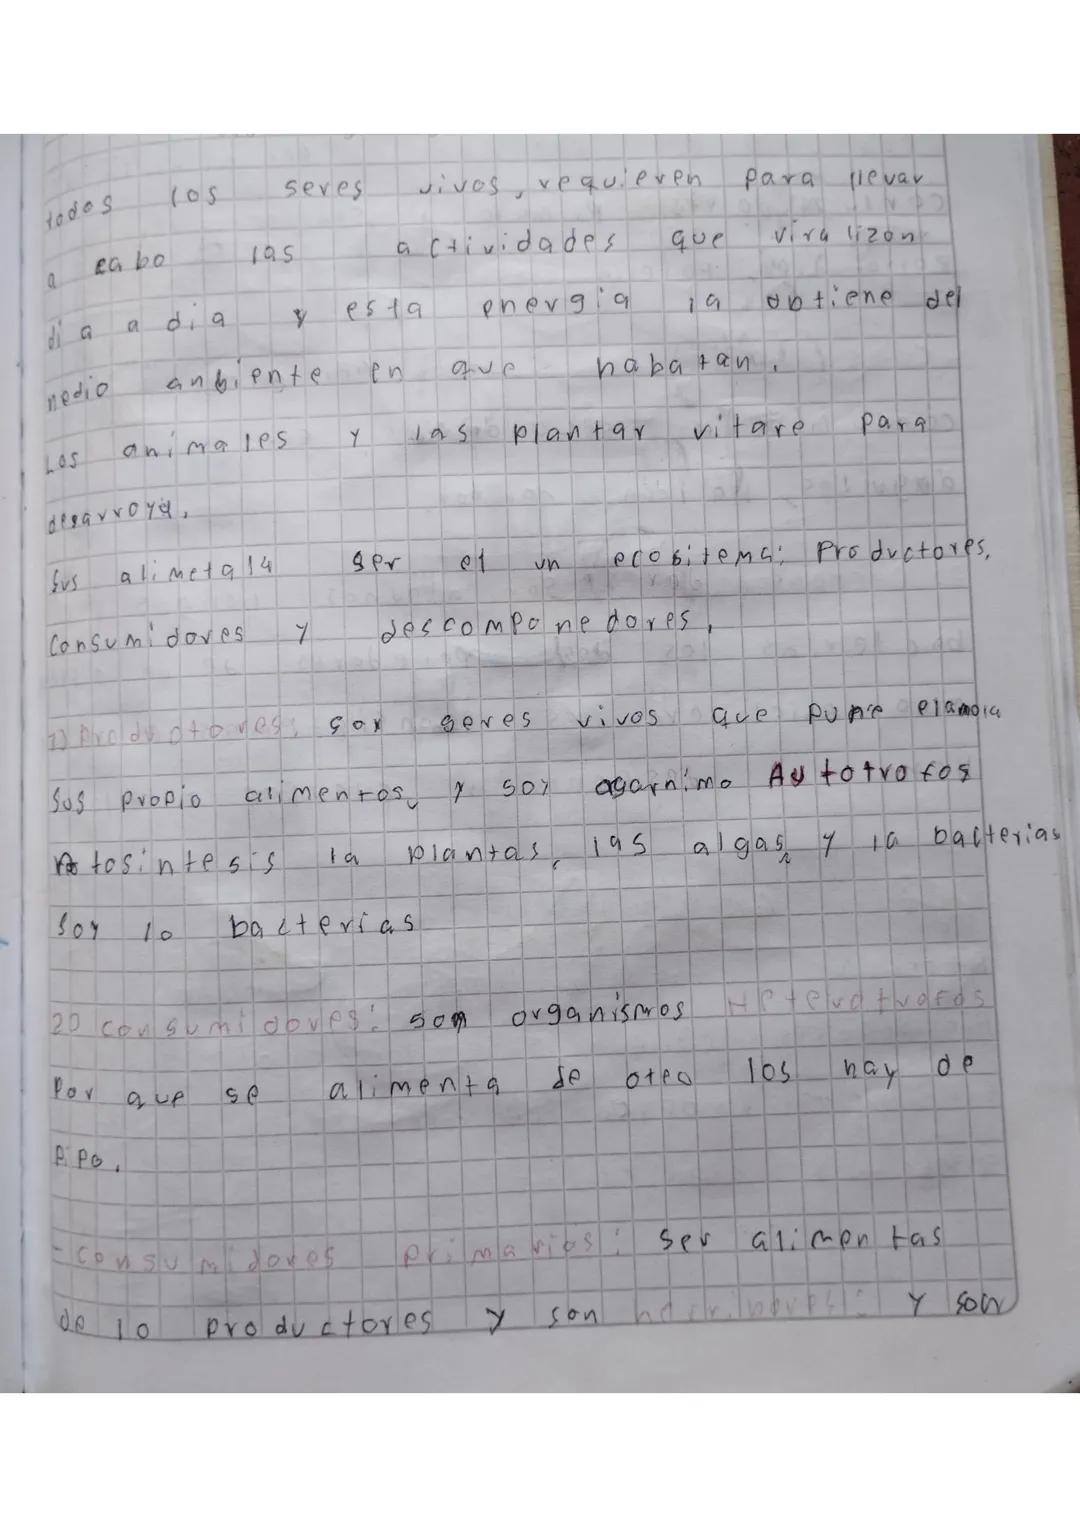 todos los seres vivos, requieren para llevar
a cabo las actividades que viralizon
dia a dia y esta energia la obtiene del
nedio anbiente en que habatan.
Los animales y las plantar vitare para
desarroya,
Sus alimetal4 ser et un ecositema: Productores,
Consumidores y descomponedores,
1) Productores: son seres vivos que pune elamoia
Sus propio alimentos, y soy ogarnimo Autotrofos
fotosintesis la plantas, las algas, y la bacterias
soy lo bacterias
2) consumidores: son organismos Heterotrofos
Por que se alimenta de oteo los hay de
- consumidores primarios: ser alimentas
de lo productores y son y son